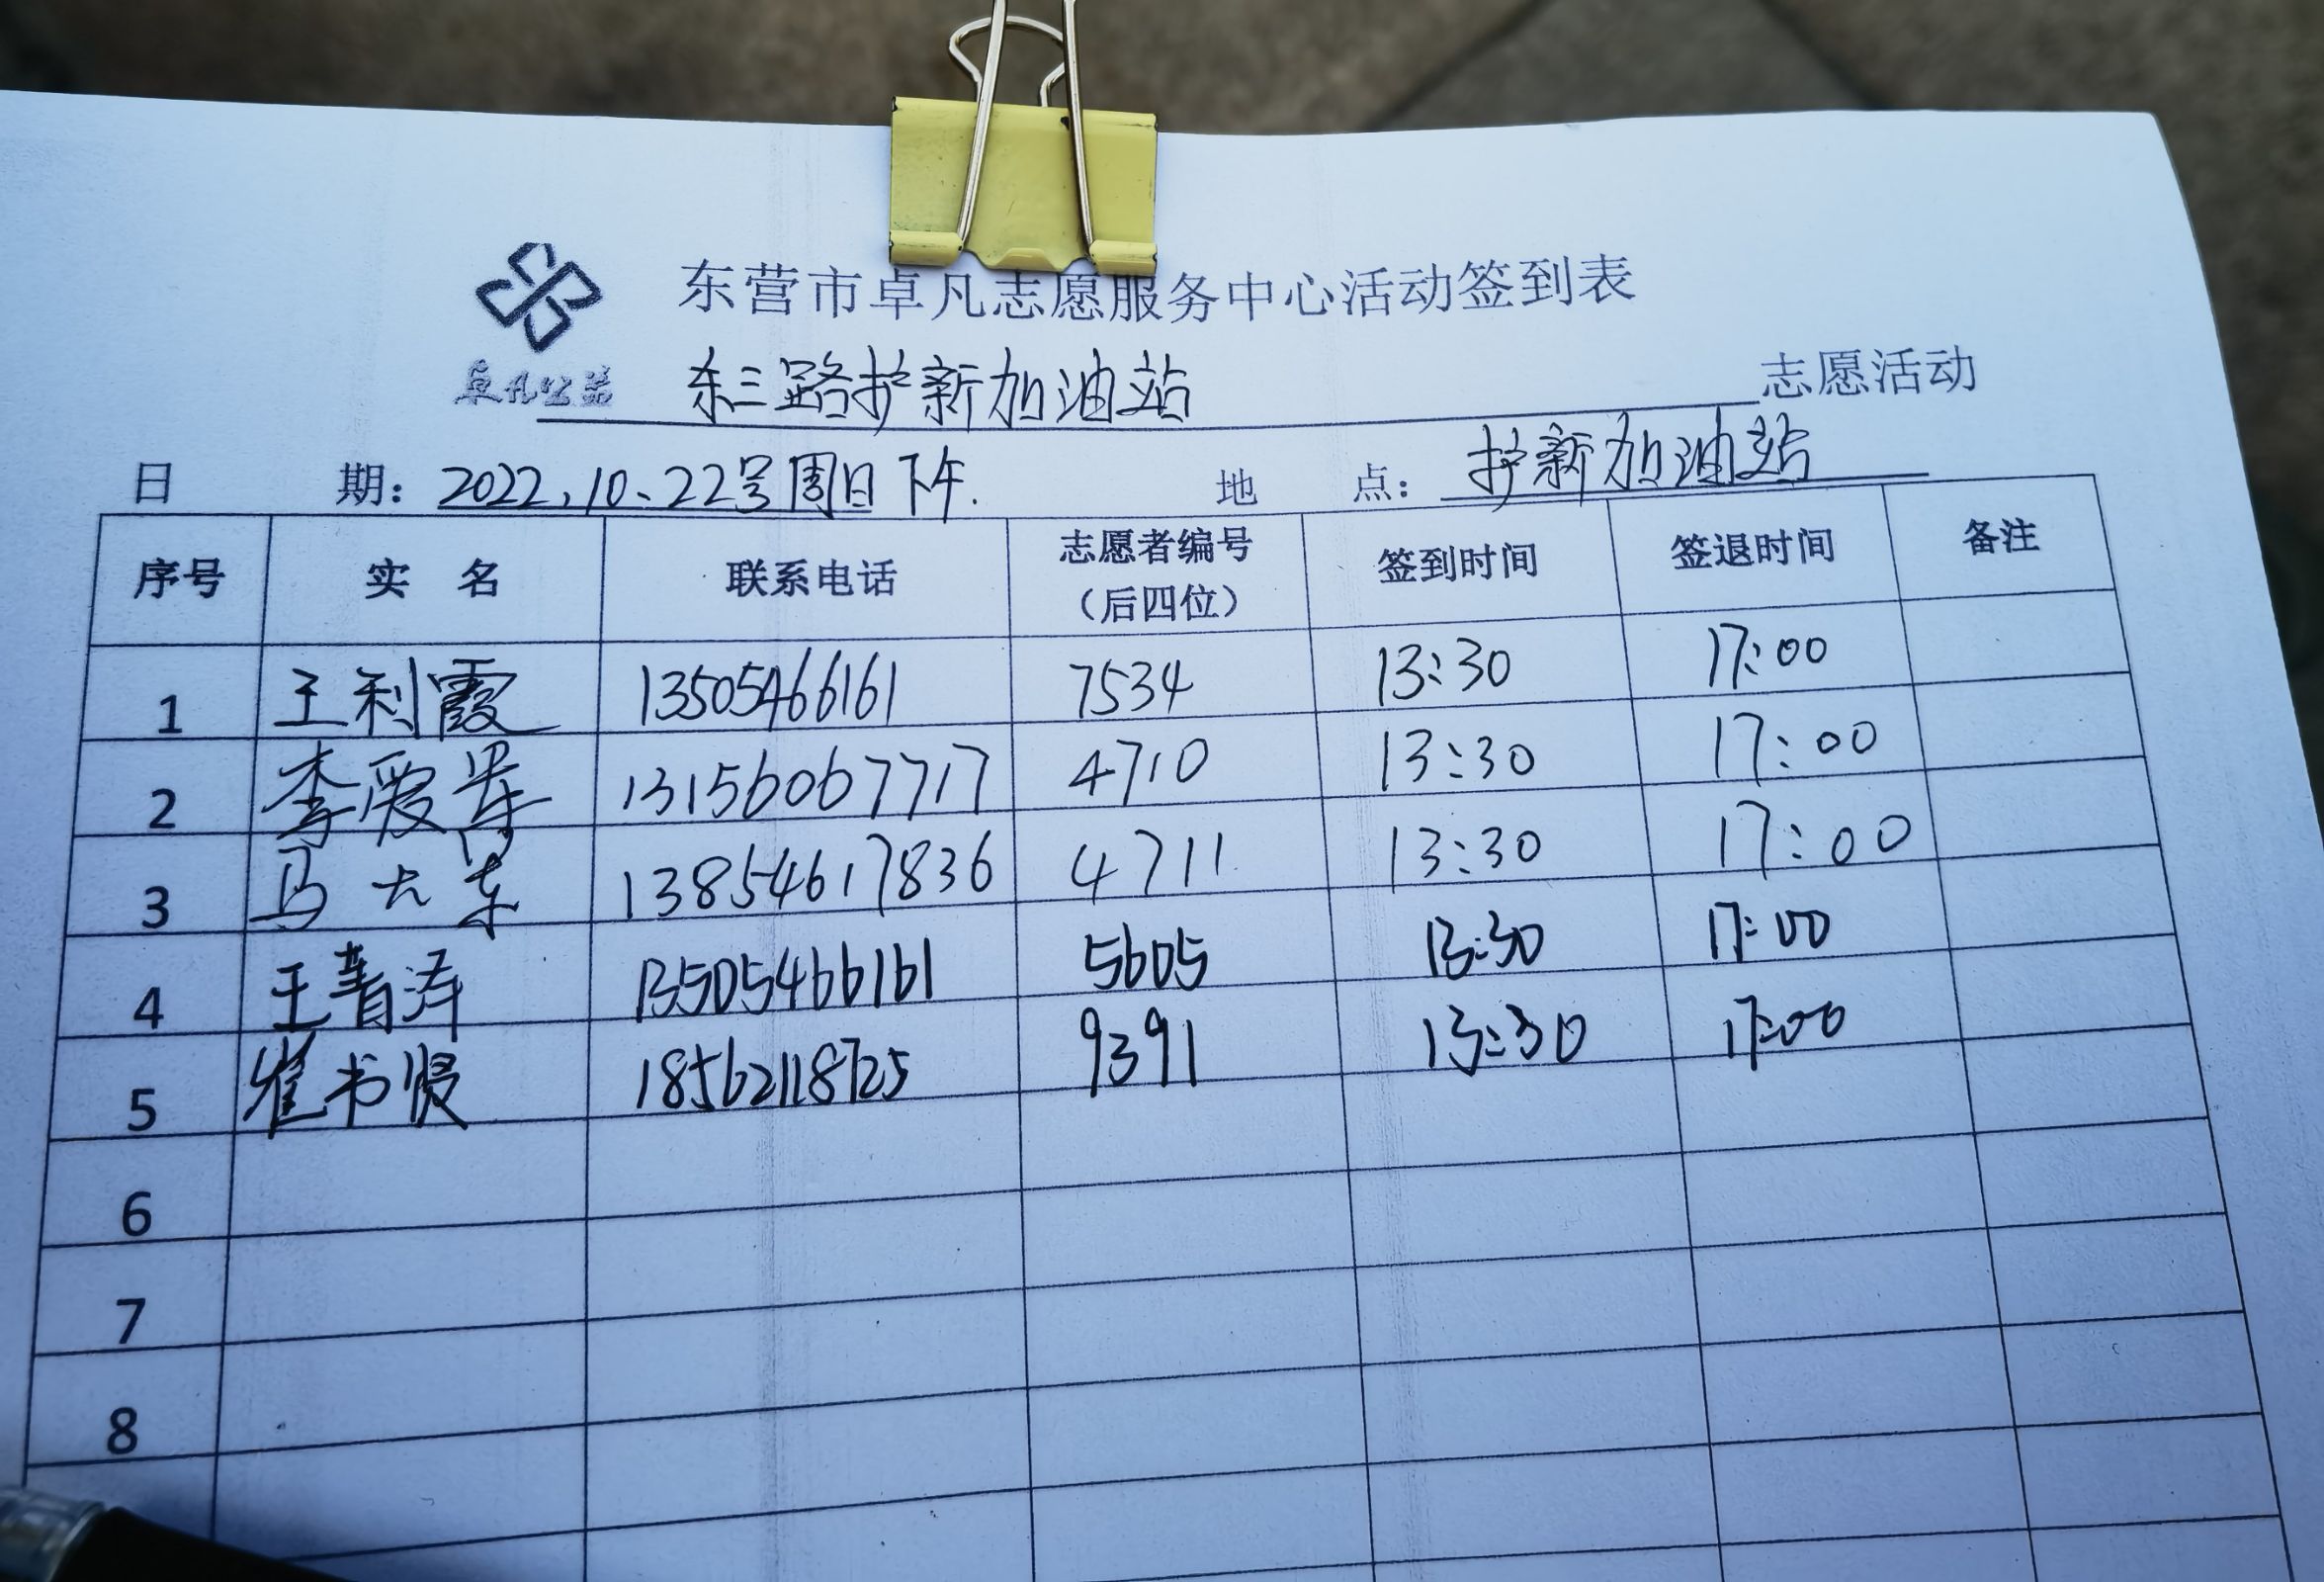 东营市卓凡志愿服务中心活动签到表
卓凡公益
东三路护新加油站 志愿活动
日 期：2022.10.22号周日下午. 地 点：护新加油站
序号 实 名 联系电话 志愿者编号（后四位） 签到时间 签退时间 备注
1 王利霞 13505466161 7534 13:30 17:00
2 李爱 13156067717 4710 13:30 17:00
3 马大东 13854617836 4711 13:30 17:00
4 王 泽 13505466161 5605 13:30 17:00
5 崔书贤 18562118725 9391 13:30 17:00
6
7
8